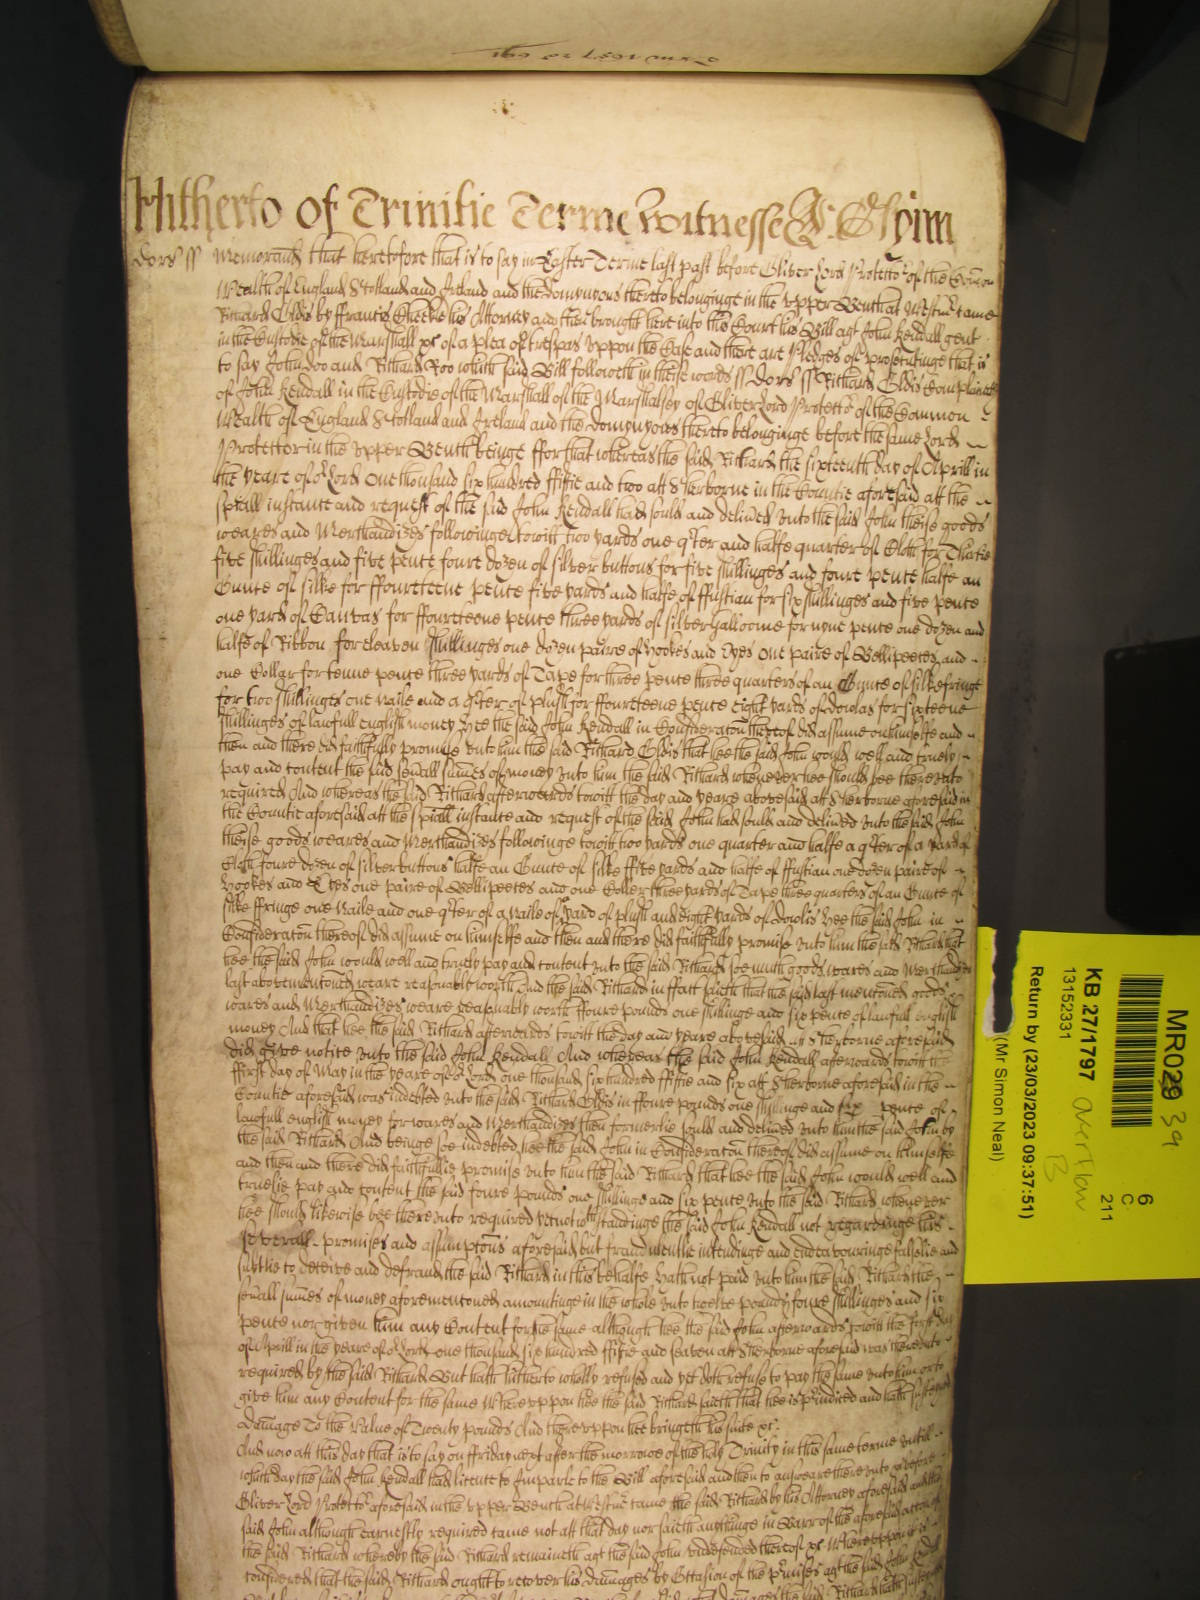 Hitherto of Trinitie Terme Witnesse Jo: Glynn
Dors ss Memorand that heretofore that is to say in Easter Terme last past before Oliver Lord Protector of the Common
Wealth of England Scotland and Ireland and the domynyons thereto belonginge in the upper Bench at Westmr came
Richard Oldis by ffrancis Cheeke his Attorney and then brought here into this Court his Bill agt John Kendall gent
in the Custodie of the Marshall &c of a plea of trespas uppon the Case and there are Pledges of prosecutinge that is
to say John Doo and Richard Roo which said Bill followeth in theise words ss Dors ss Richard Oldis Complaineth
of John Kendall in the Custodie of the Marshall of the Marshalsey of Oliver Lord Protector of the Common
Wealth of England Scotland and Ireland and the domynyons thereto belonginge before the same Lord
Protector in the upper Bench beinge ffor that whereas the said Richard the sixteenth day of Aprill in
the yeare of or Lord one thousand six hundred fiftie and two att Sherborne in the Countie aforesaid att the
speciall instance and request of the said John Kendall had sould and delived unto the said John theise goods
weares and Merchandizes followinge towitt two yards one qrter and halfe quarter of Cloth for Thirtie
five shillinges and five pence foure dozen of silver buttons for five shillinges and foure pence halfe an
Ounce of silke for ffourteene pence five yards and halfe of ffustian for six shillinges and five pence
one yard of Canvas for ffourteene pence three yards of silver Galloome for nyne pence one dozen and
halfe of Ribbon for eleaven shillinges one dozen paire of Hookes and Eyes one paire of Bellipeeces and
one Collar for tenne pence three yards of Tape for three pence three quarters of an Ounce of silke fringe
for two shillinges one naile and a qrter of plush for ffourteene pence eight yards of dowlas for sixteene
shillinges of lawfull english money hee the said John Kendall in Consideracon thereof did assume on himselfe and
then and there did faithfully promise unto him the said Richard Oldis that hee the said John would well and truely
pay and content the said sevall sumes of money unto him the said Richard whenever hee should bee thereunto
required And whereas the said Richard afterwards towitt the day and yeare abovesaid att Sherborne aforesaid in
the Countie aforesaid att the speciall instance and request of the said John had sould and delived unto the said John
theise goods weares and Merchandizes followinge towitt two yards one quarter and halfe a qrter of a yard of
Cloth foure dozen of silver buttons halfe an Ounce of silke ffive yards and halfe of ffustian one dozen paire of
Hookes and Eyes one paire of Bellipeeces and one Coller three yards of Tape three quarters of an Ounce of
silke ffringe one naile and one qrter of a naile of yard of plush and eight yards of dowlis hee the said John in
Consideracon thereof did assume on himselfe and then and there did faithfully promise unto him the said Richard that
hee the said John would well and truely pay and content unto the said Richard soe much goods wares and Merchandizes
last abovementoned weare reasonably worth And the said Richard in ffact saieth that the said last mentoned goods
wares and Merchandizes weare reasonably worth ffoure pounds one shillinge and six pence of lawfull english
money And that hee the said Richard afterwards towitt the day and yeare abovesaid att Sherborne aforesaid
did give notice unto the said John Kendall And whereas the said John Kendall afterwards towitt the
ffirst day of May in the yeare of or Lord one thousand six hundred ffiftie and six att Sherborne aforesaid in the
Countie aforesaid was indebted unto the said Richard Oldis in ffoure pounds one shillinge and six pence of
lawfull english money for wares and Merchandizes then formerlie sould and delived unto him the said John by
the said Richard And beinge soe indebted hee the said John in Consideracon thereof did assume on himselfe
and then and there did faithfullie promise unto him the said Richard that hee the said John would well and
truelie pay and content the said foure pounds one shillinge and six pence unto the said Richard whenever
hee should likewise bee thereunto required yet notwthstandinge the said John Kendall not regardinge his
severall promises and assumptons aforesaid but fraudulentlie intendinge and endeavouringe falselie and
subtlie to deceive and defraud the said Richard in this behalfe hath not paid unto him the said Richard the
sevall sumes of money aforementoned amountinge in the whole unto twelve pounds foure shillinges and six
pence nor given him any Content for the same although hee the said John afterwards towitt the first day
of Aprill in the yeare of or Lord one thousand six hundred ffiftie and seaven att Sherborne aforesaid was thereunto
required by the said Richard But hath hitherto wholly refused and yet doth refuse to pay the same unto him or to
give him any Content for the same Whereuppon hee the said Richard saieth that hee is preiudiced and hath susteyned
damage To the value of Twenty pounds And thereuppon hee bringeth his suite &c.
And now att this day that is to say on ffriday next after the morrowe of the holy Trinity in this same terme untill
which day the said John Kendall had licence to Imparle to the Bill aforesaid and then to answeare thereunto &c before
Oliver Lord Protector aforesaid in the upper Bench at Westmr came the said Richard by his Attorney aforesaid and the
said John although earnestly required came not att that day nor saieth anythinge in Barr of the aforesaid accon of
the said Richard whereby the said Richard remaineth agt the said John undefended thereof &c Whereuppon it is
considered that the said Richard ought to recover his damages by Occasion of the prmises agt the said John Kendall
MR029 39
KB 27/1797
13152331
Return by (23/03/2023 09:37:51)
(Mr Simon Neal)
overflow
B
6
C
211